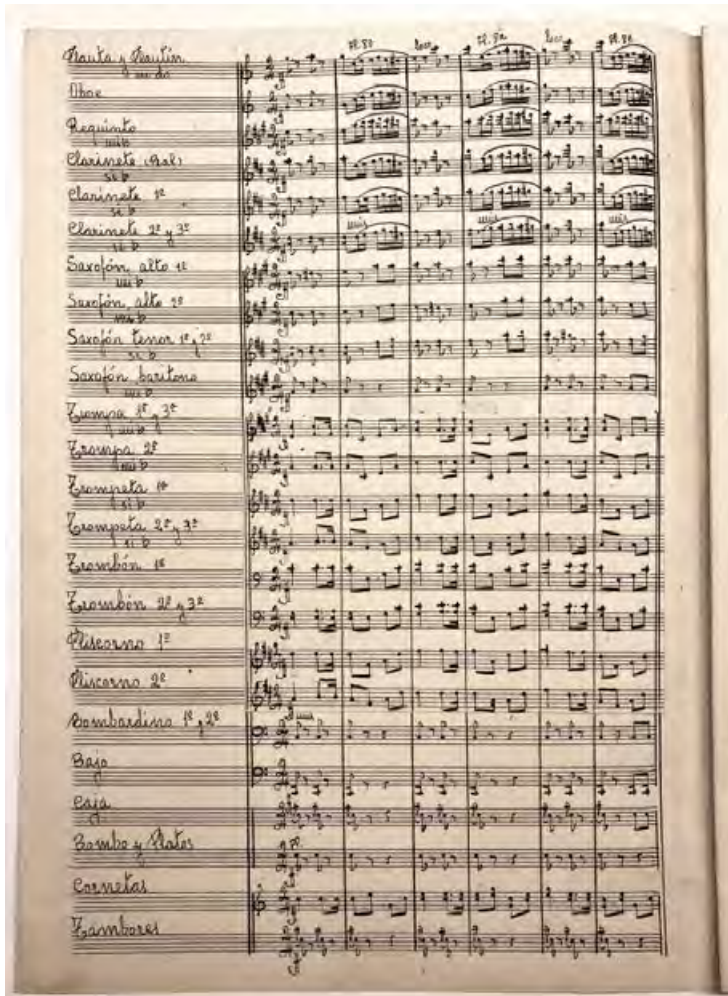 Fl. 8ª loco Fl. 8ª loco Fl. 8ª
Flauta y Flautín
en do
Oboe
Requinto
mi b
Clarinete (Pral)
si b
Clarinete 1º
si b
Clarinete 2º y 3º
si b
unis unis unis
Saxofón alto 1º
mi b
Saxofón alto 2º
mi b
Saxofón tenor 1º y 2º
si b
Saxofón barítono
mi b
Trompa 1ª y 3ª
mi b
Trompa 2ª
mi b
Trompeta 1ª
si b
Trompeta 2ª y 3ª
si b
Trombón 1º
Trombón 2º y 3º
Fliscorno 1º
Fliscorno 2º
Bombardino 1º y 2º
unis
Bajo
Caja
Bombo y Platos
Cornetas
Tambores